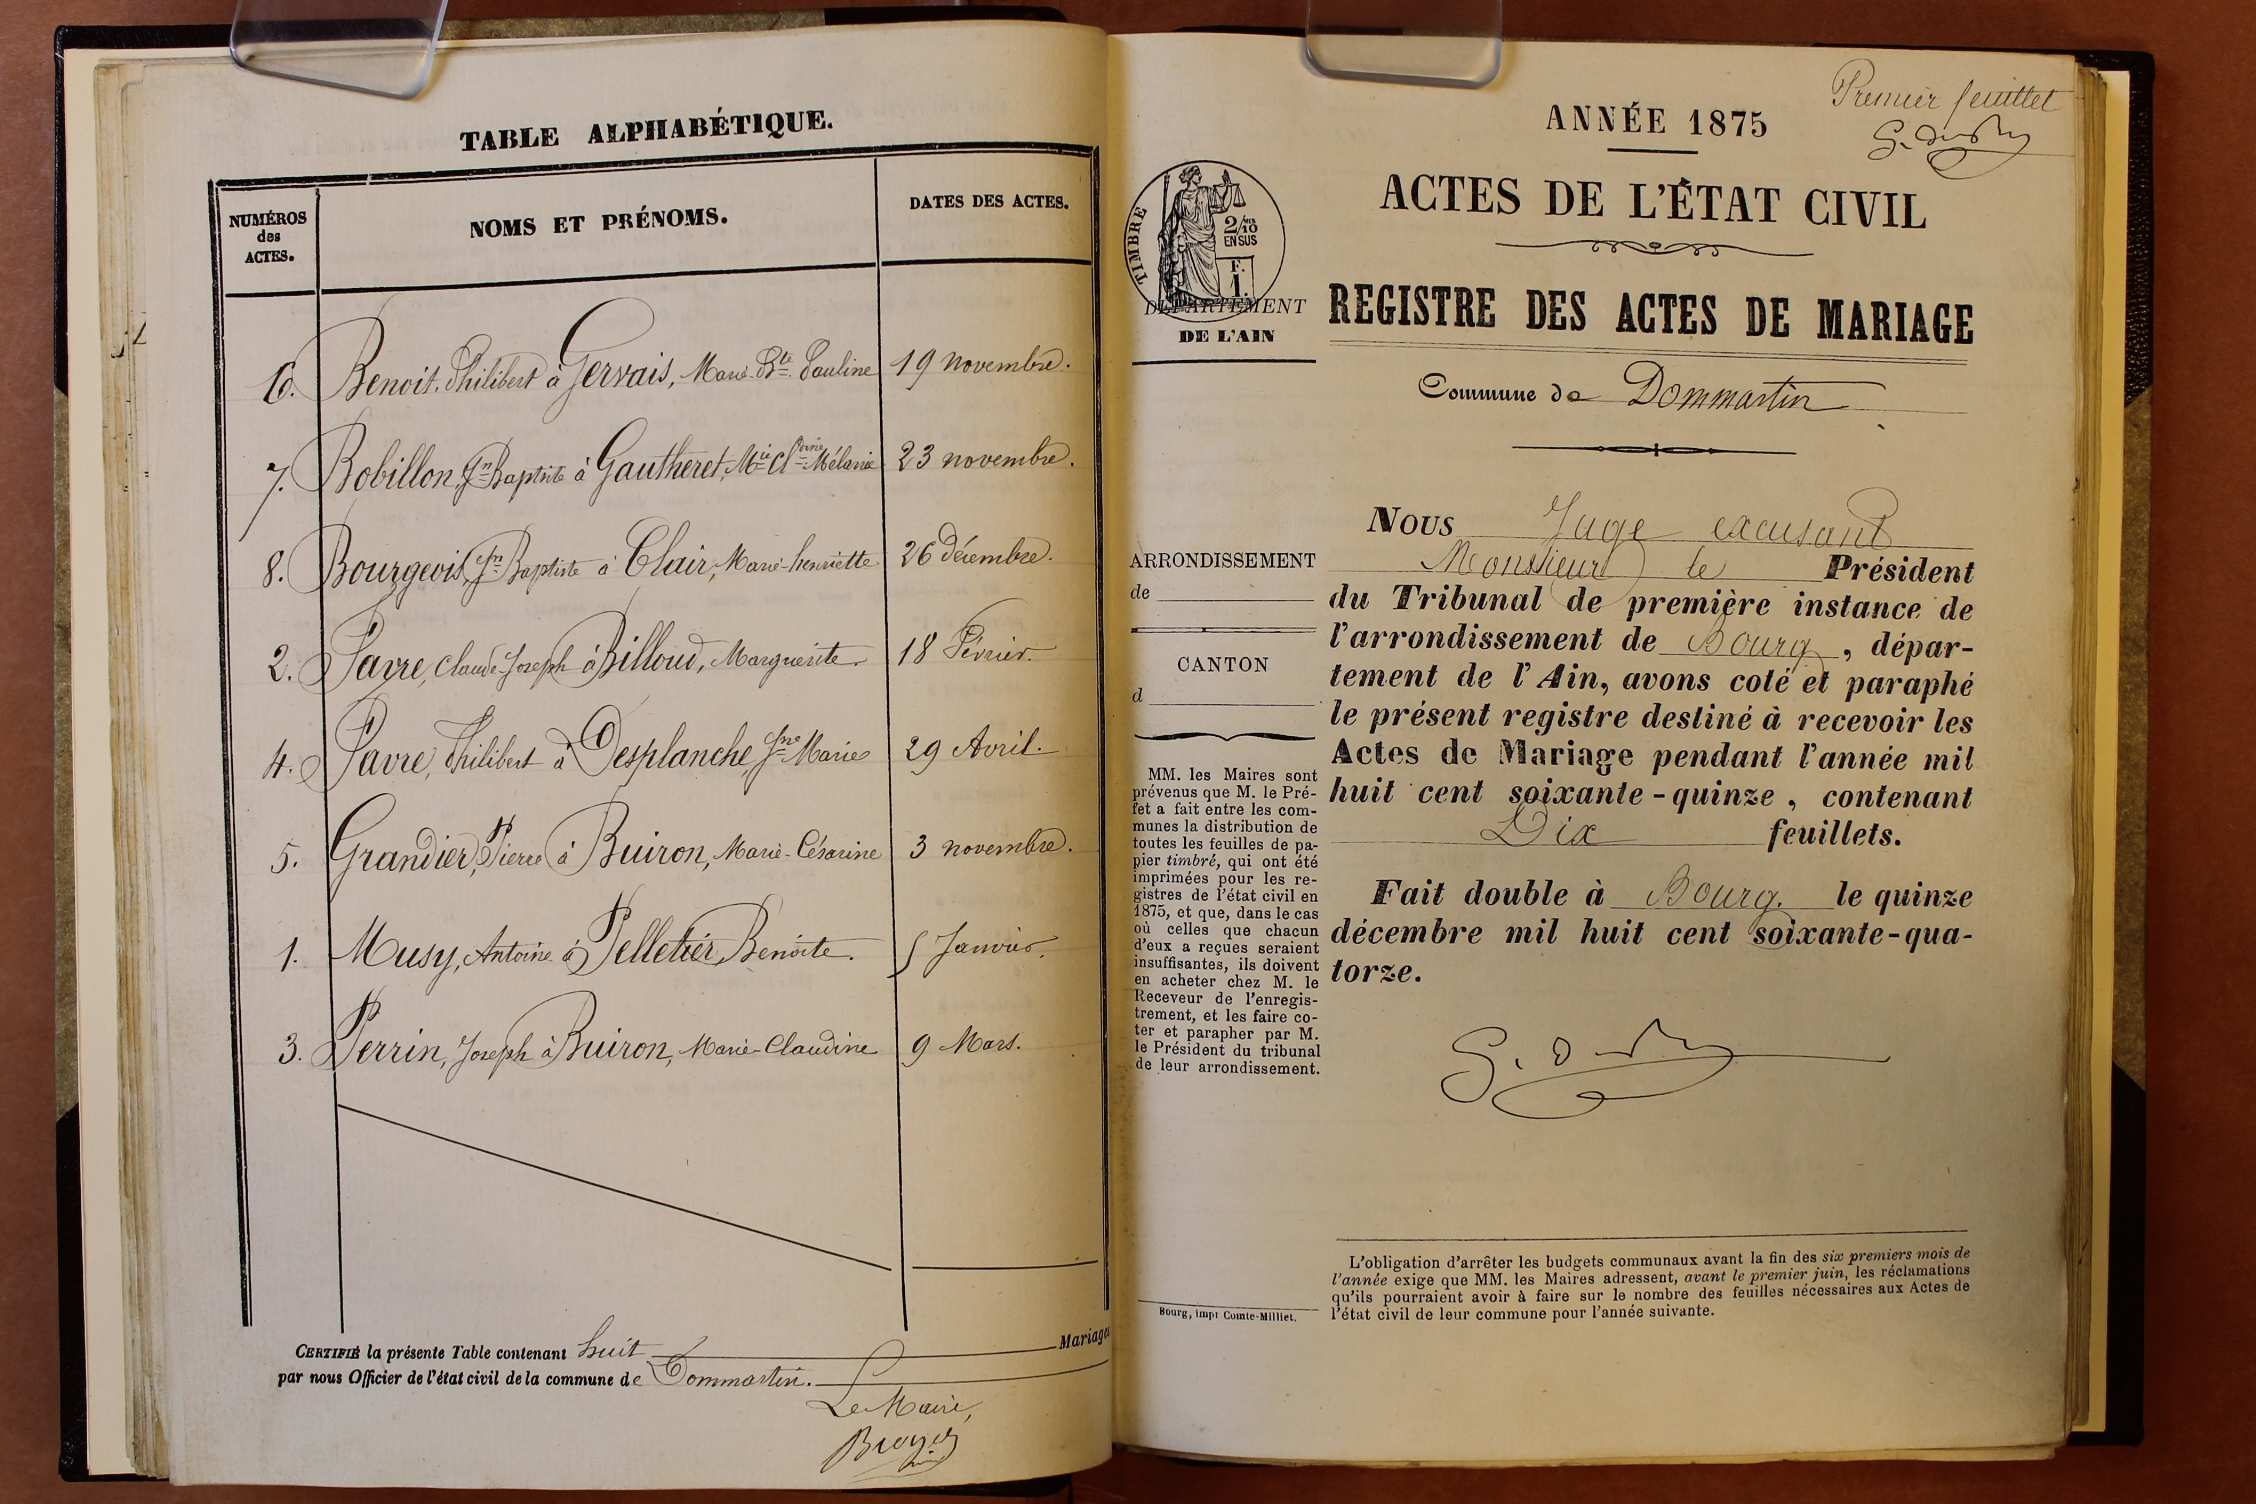 TABLE ALPHABÉTIQUE.
NUMÉROS
des
ACTES.
NOMS ET PRÉNOMS.
DATES DES ACTES.
6. Benoit, Philibert à Gervais, Marie Bte Pauline 19 novembre.
7. Bobillon, Jn Baptiste à Gautheret, Mie Cl Mélanie 23 novembre.
8. Bourgeois, Jn Baptiste à Clair, Marie-henriette 26 décembre.
2. Favre, Claude-Joseph à Billoud, Marguerite. 18 Février.
4. Favre, Philibert à Desplanche, Jne Marie 29 Avril.
5. Grandier, Pierre à Buiron, Marie-Césarine 3 novembre.
1. Musy, Antoine à Pelletier, Benoite. 5 Janvier.
3. Perrin, Joseph à Buiron, Marie-Claudine 9 Mars.
CERTIFIÉ la présente Table contenant huit Mariages
par nous Officier de l'état civil de la commune de Dommartin.
Le Maire,
Premier feuillet
ANNÉE 1875
ACTES DE L'ÉTAT CIVIL
TIMBRE
2/10
EN SUS
F.
1.
DÉPARTEMENT
DE L'AIN
REGISTRE DES ACTES DE MARIAGE
Commune de Dommartin
ARRONDISSEMENT
de
CANTON
d
MM. les Maires sont
prévenus que M. le Pré-
fet a fait entre les com-
munes la distribution de
toutes les feuilles de pa-
pier timbré, qui ont été
imprimées pour les re-
gistres de l'état civil en
1875, et que, dans le cas
où celles que chacun
d'eux a reçues seraient
insuffisantes, ils doivent
en acheter chez M. le
Receveur de l'enregis-
trement, et les faire co-
ter et parapher par M.
le Président du tribunal
de leur arrondissement.
Bourg, impr Comte-Milliet.
NOUS Juge excusant
Monsieur le Président
du Tribunal de première instance de
l'arrondissement de Bourg, dépar-
tement de l'Ain, avons coté et paraphé
le présent registre destiné à recevoir les
Actes de Mariage pendant l'année mil
huit cent soixante-quinze, contenant
Dix feuillets.
Fait double à Bourg. le quinze
décembre mil huit cent soixante-qua-
torze.
L'obligation d'arrêter les budgets communaux avant la fin des six premiers mois de
l'année exige que MM. les Maires adressent, avant le premier juin, les réclamations
qu'ils pourraient avoir à faire sur le nombre des feuilles nécessaires aux Actes de
l'état civil de leur commune pour l'année suivante.